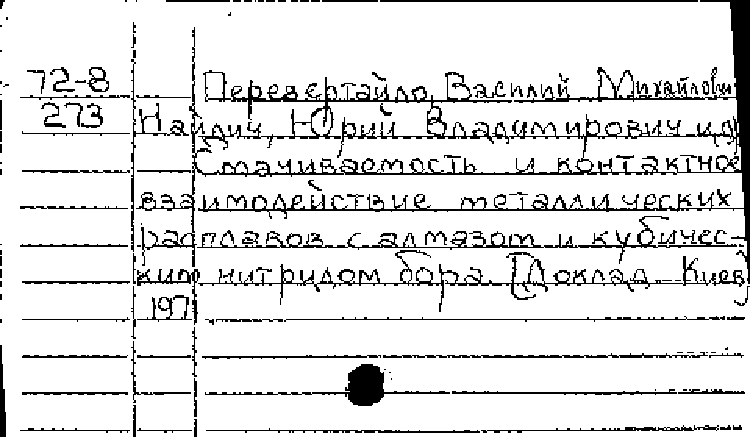 72-8 Перевертайло, Василий Михайлови
273 Найдич, Юрий Владимирович и др
Смачиваемость и контактное
взаимодействие металлических
расплавов с алмазом и кубичес-
ким нитридом бора. [Доклад. Киев]
1971